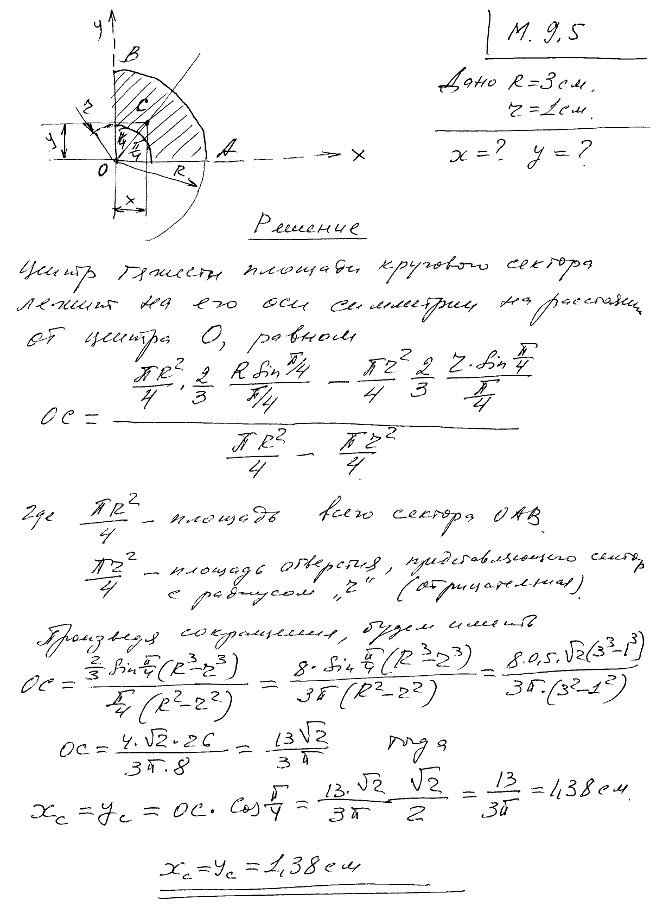 y
B
М. 9,5
Дано R=3см.
r=1см.
x=? y=?
r
C
y
π/4
π/4
A
x
O
R
x
Решение
Центр тяжести площади кругового сектора
лежит на его оси симметрии на расстоянии
от центра О, равном
OC = (πR²/4 · 2/3 · R Sin π/4 / π/4 − πr²/4 · 2/3 · r·sin π/4 / π/4) / (πR²/4 − πr²/4)
где πR²/4 – площадь всего сектора ОАВ.
πr²/4 – площадь отверстия, представляющего сектор
с радиусом „r" (отрицательная).
Произведя сокращения, будем иметь
OC = 2/3 Sin π/4 (R³−r³) / π/4 (R²−r²) = 8·Sin π/4 (R³−r³) / 3π(R²−r²) = 8·0,5·√2(3³−1³) / 3π·(3²−1²)
OC = 4·√2·26 / 3π·8 = 13√2 / 3π тогда
x_c = y_c = OC·Cos π/4 = 13·√2 / 3π √2 / 2 = 13 / 3π = 1,38 см.
x_c = y_c = 1,38 см